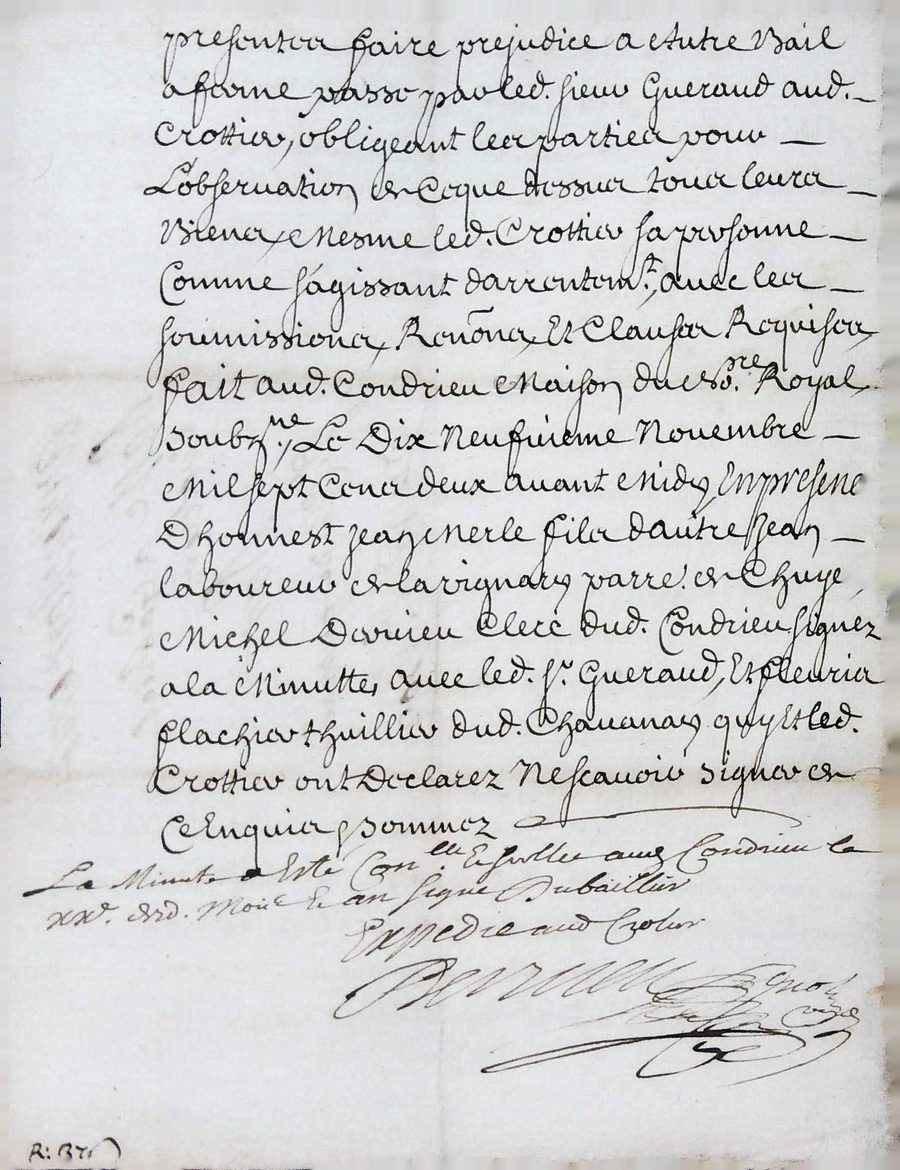 presentes faire prejudice a Autre Bail
aferme passe par led. sieur Gueraud aud.
Crottier, obligeant les parties pour
L'observation de Ceque dessus tous leurs
Biens, Mesme led. Crottier sa personne
Comme s'agissant darrentemt., avec les
soumissions, Renôns, Et Clauses Requises,
fait aud. Condrieu Maison du Nore. Royal
soubzne., Le Dix Neufvieme Novembre
Mil sept Cens deux avant Midy Enpresene
D honnest Jean Merle fils dautre Jean
laboureur de lavignary parre. de Chuye,
Michel Dervieu Clerc dud. Condrieu signez
ala Minutte, avec led. sr. Gueraud, Et fleurie
flachier thuillier dud. Chavanay quy Et led.
Crottier ont Declarez Nescavoir signer de
Ce Enquis Sommez
La Minute a Esté Conlle Escellee aud Condrieu le
xxe. desd. Mois E an signé Dubaillier
Expedié aud Crotier
Dervieu
R: 37s